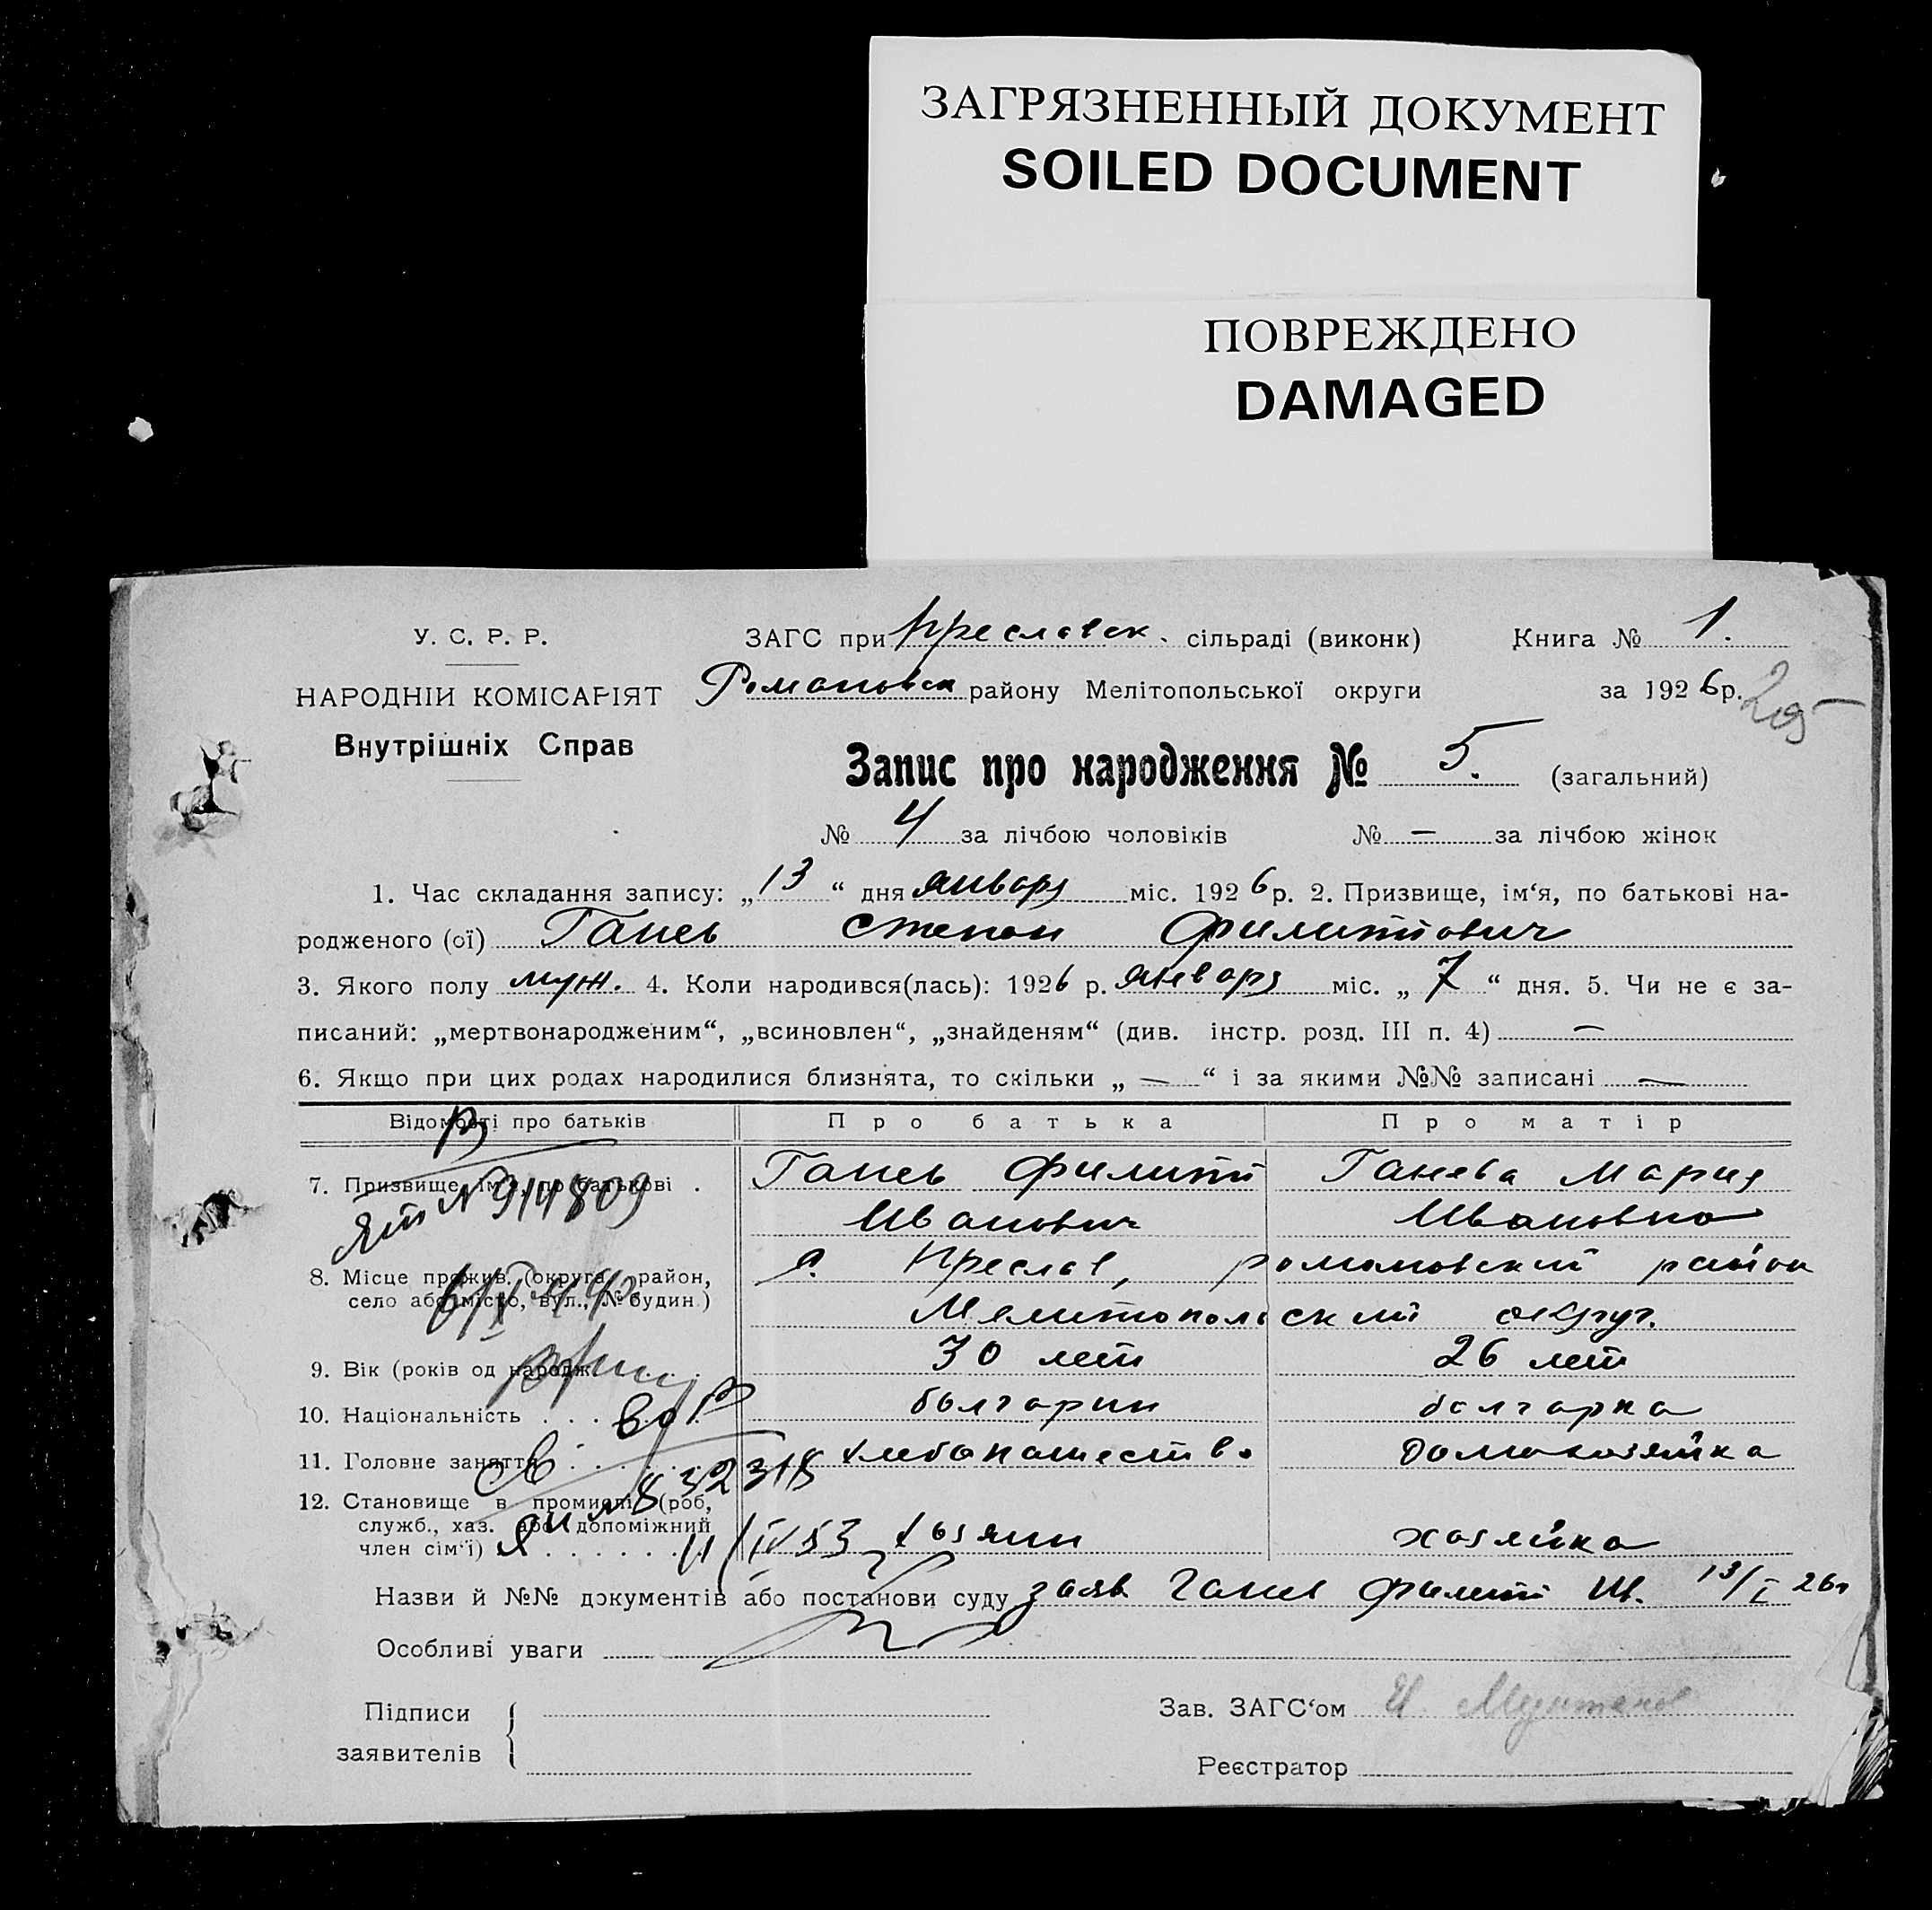 ЗАГРЯЗНЕННЫЙ ДОКУМЕНТ
SOILED DOCUMENT
ПОВРЕЖДЕНО
DAMAGED
У. С. Р. Р.
НАРОДНІЙ КОМІСАРІЯТ
Внутрішніх Справ
ЗАГС при Преславск. сільраді (виконк) Книга № 1.
Романовск району Мелітопольської округи за 1926 р.
Запис про народження № 5. (загальний)
№ 4 за лічбою чоловіків № — за лічбою жінок
1. Час складання запису: „13“ дня января міс. 1926 р. 2. Призвище, ім‘я, по батькові на-
родженого (ої) Ганев Степан Филиппович
3. Якого полу муж. 4. Коли народився(лась): 1926 р. января міс. „7“ дня. 5. Чи не є за-
писаний: „мертвонародженим“, „всиновлен“, „знайденям“ (див. інстр. розд. III п. 4) —
6. Якщо при цих родах народилися близнята, то скільки „—“ і за якими №№ записані —
Відомості про батьків Про батька Про матір
7. Призвище, ім‘я, по батькові . Ганев Филипп Ганева Мария
Иванович Ивановна
ЯП № 914809
8. Місце прожив. (округа, район, с. Преслав, романовский район
село або місто, вул., № будин.) Мелитопольский округ.
9. Вік (років од народж. 30 лет 26 лет
10. Національність . . . болгарин болгарка
11. Головне заняття . . . хлебопашество домохозяйка
№ 832318
12. Становище в промислі (роб,
служб., хаз. або допоміжний
член сім‘ї) . . . хозяин хозяйка
11/IV 53
Назви й №№ документів або постанови суду заяв Ганев Филипп Ив. 13/I 26г
Особливі уваги
Підписи
заявителів
Зав. ЗАГС‘ом
Реєстратор